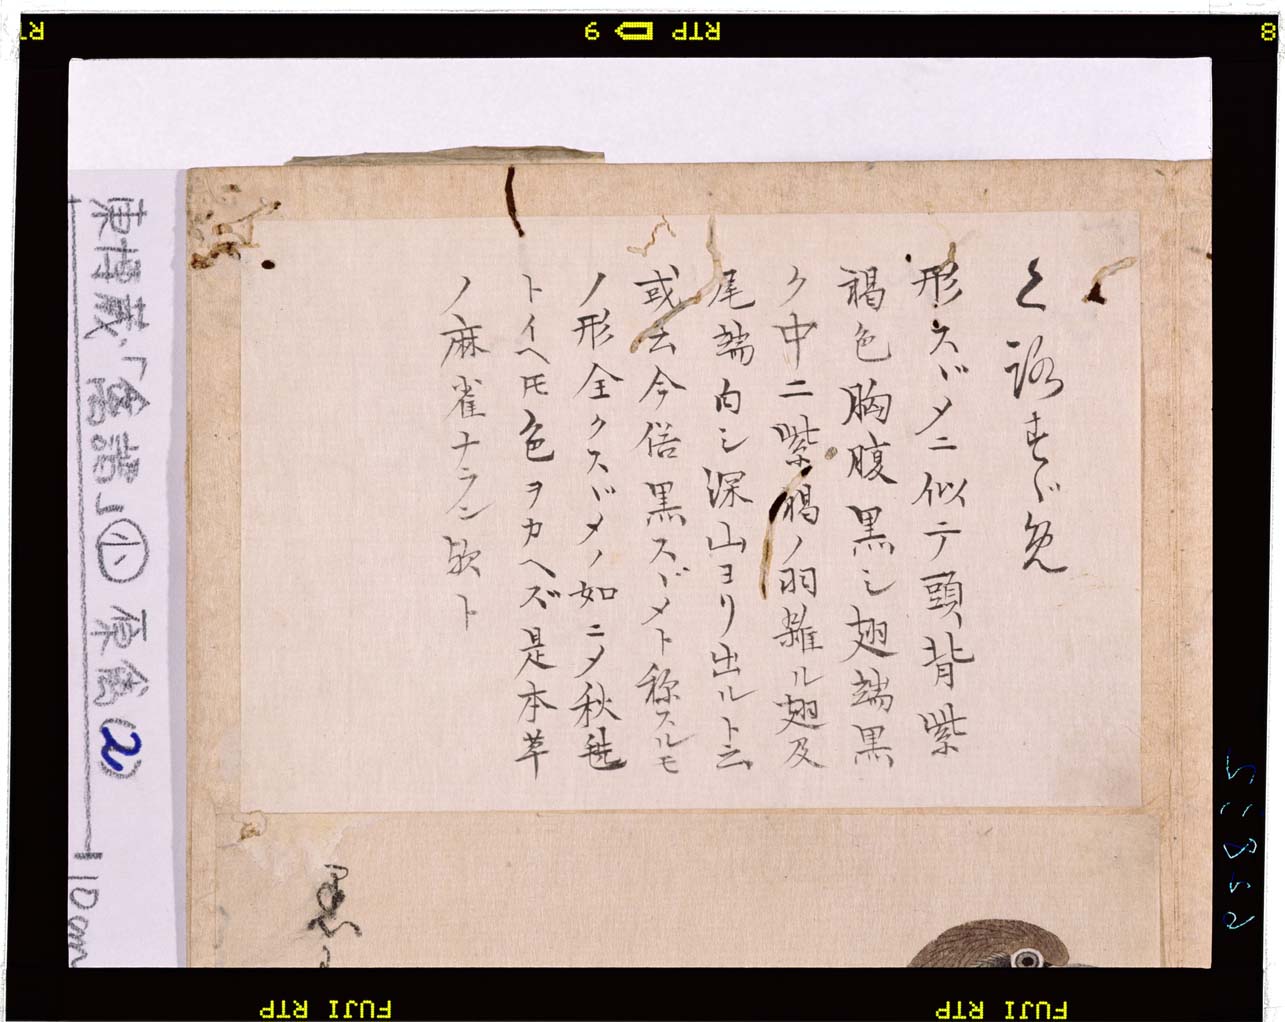 くろすゞめ
形スヾメニ似テ頭背紫
褐色胸腹黒シ翅端黒
ク中ニ紫褐ノ羽雜ル翅及
尾端白シ深山ヨリ出ルト云
或云今倍黒スヾメト称スルモ
ノ形全クスヾメノ如ニメ秋
トイヘ𪜈色ヲカヘズ是本草
ノ麻雀ナラン欤ト
黒
東博蔵、「禽譜」小 原禽(2)
RTP 9 RTP 8
FUJI RTP
FUJI RTP